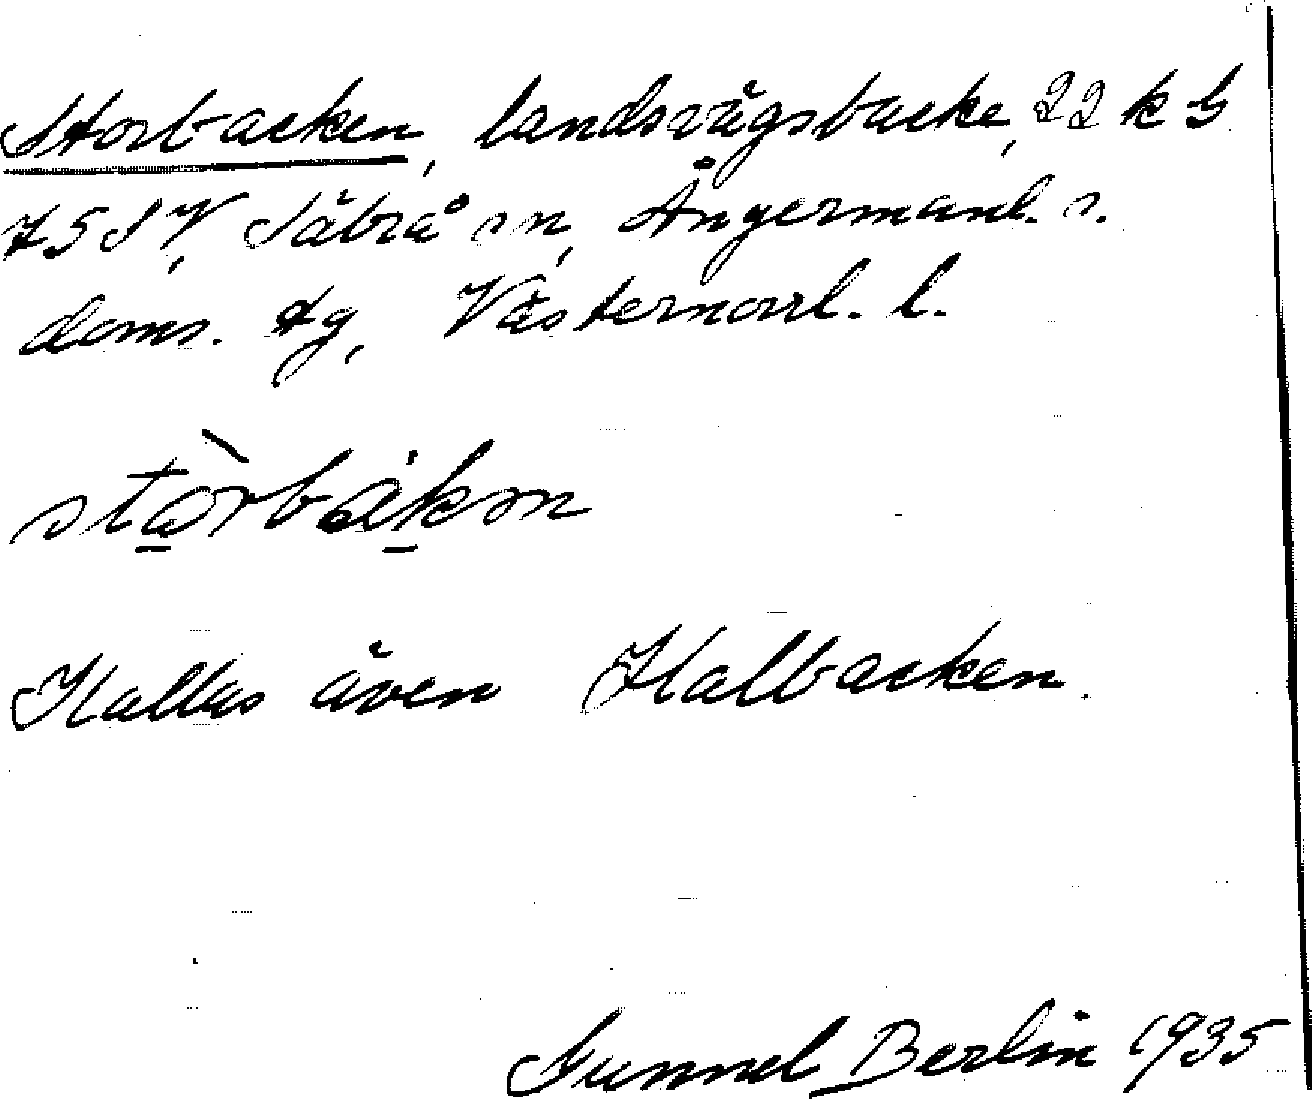 Storbacken, landsvägsbacke, 22 k G
75 SV, Säbrå sn, Ångermanl. s.
doms. tg, Västernorrl. l.
stòrbákm
Kallas även Halbacken.
Gunnel Berlin 1935